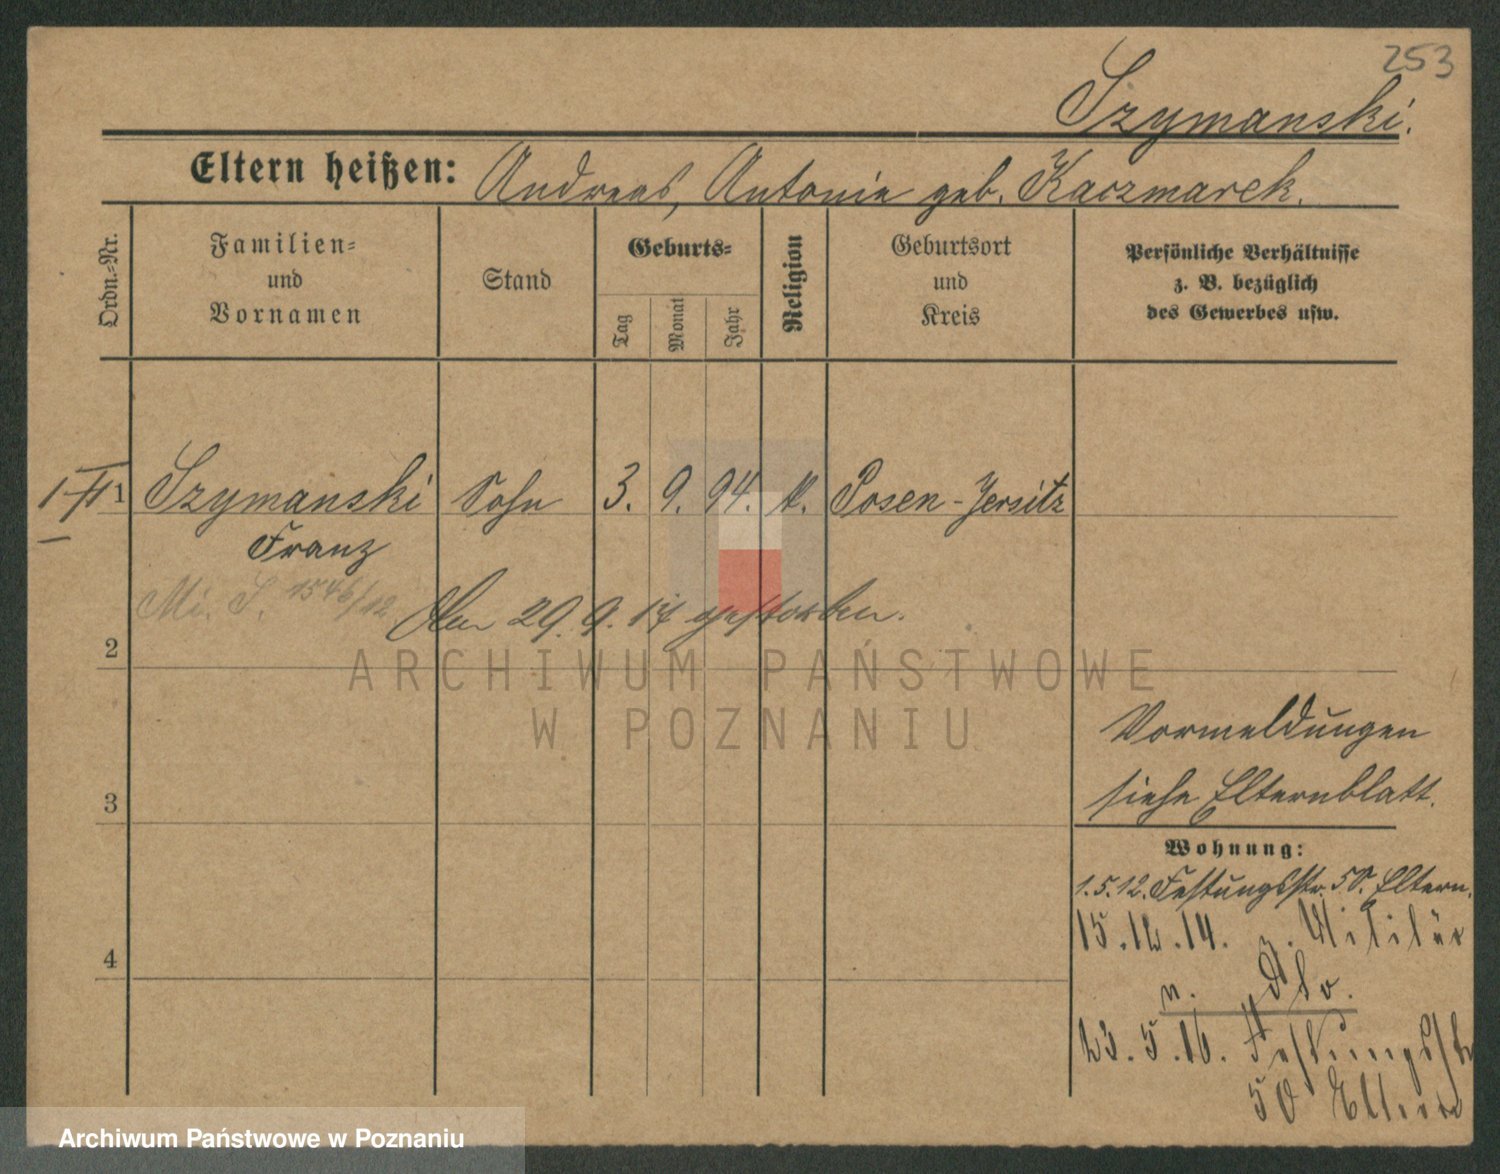 253
Szymanski.
Eltern heißen: Andreas, Antonie geb. Kaczmarek.
Ordn.=Nr.
Familien=
und
Vornamen
Stand
Geburts=
Tag
Monat
Jahr
Religion
Geburtsort
und
Kreis
Persönliche Verhältnisse
z. B. bezüglich
des Gewerbes usw.
1 Szymanski Sohn 3. 9. 94. k. Posen-Jersitz
Franz
Mi. S. 1546/12
Am 29. 9. 17 gestorben.
2
ARCHIWUM PAŃSTWOWE
W POZNANIU
3
4
Vormeldungen
siehe Elternblatt.
Wohnung:
1.5.12. Festungsstr. 50. Eltern.
15.12.14. z. Militär
n.
23.5.16. Festungsstr
50 Eltern
Archiwum Państwowe w Poznaniu